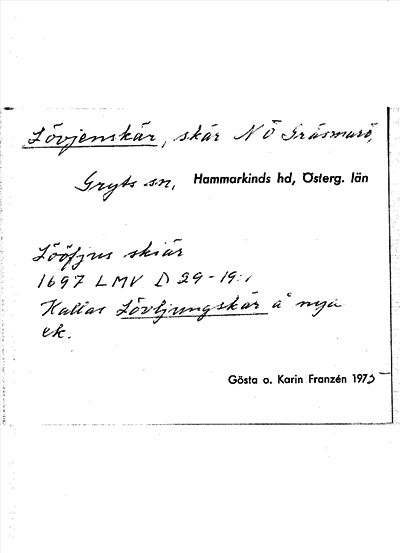 Lövjenskär, skär NÖ Gräsmarö,
Gryts sn, Hammarkinds hd, Österg. län
Lööfjus skiär
1697 LMV D 29-19:1
Kallas Lövljungskär å nya
ek.
Gösta o. Karin Franzén 1975